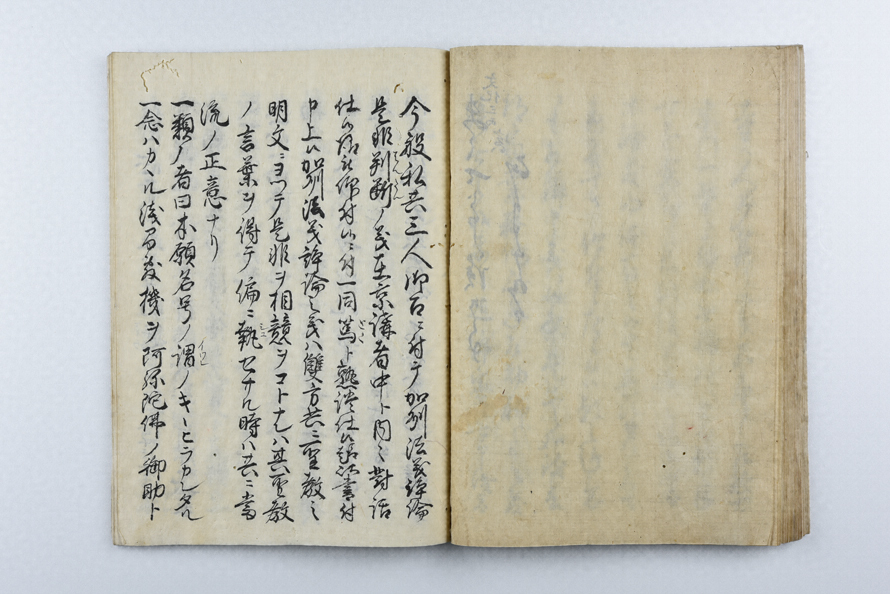 今般私共三人御召ニ付テ加州法義諍論
是非判断ノ義在京講者中ト内々對話
仕候様被仰付候ニ付一同篤ト熟談仕候
申上候加州法義諍論之義ハ雙方共ニ聖教之
明文ニヨツテ是非ヲ相競ヲコトナレハ其聖教
ノ言葉ヲ得テ偏ニ執セサル時ハ共ニ當
流ノ正意ナリ
一類ノ者曰本願名号ノ謂ノキヽヒラカレタル
一念ハカヽル浅間敷機ヲ阿弥陀佛ノ御助ト